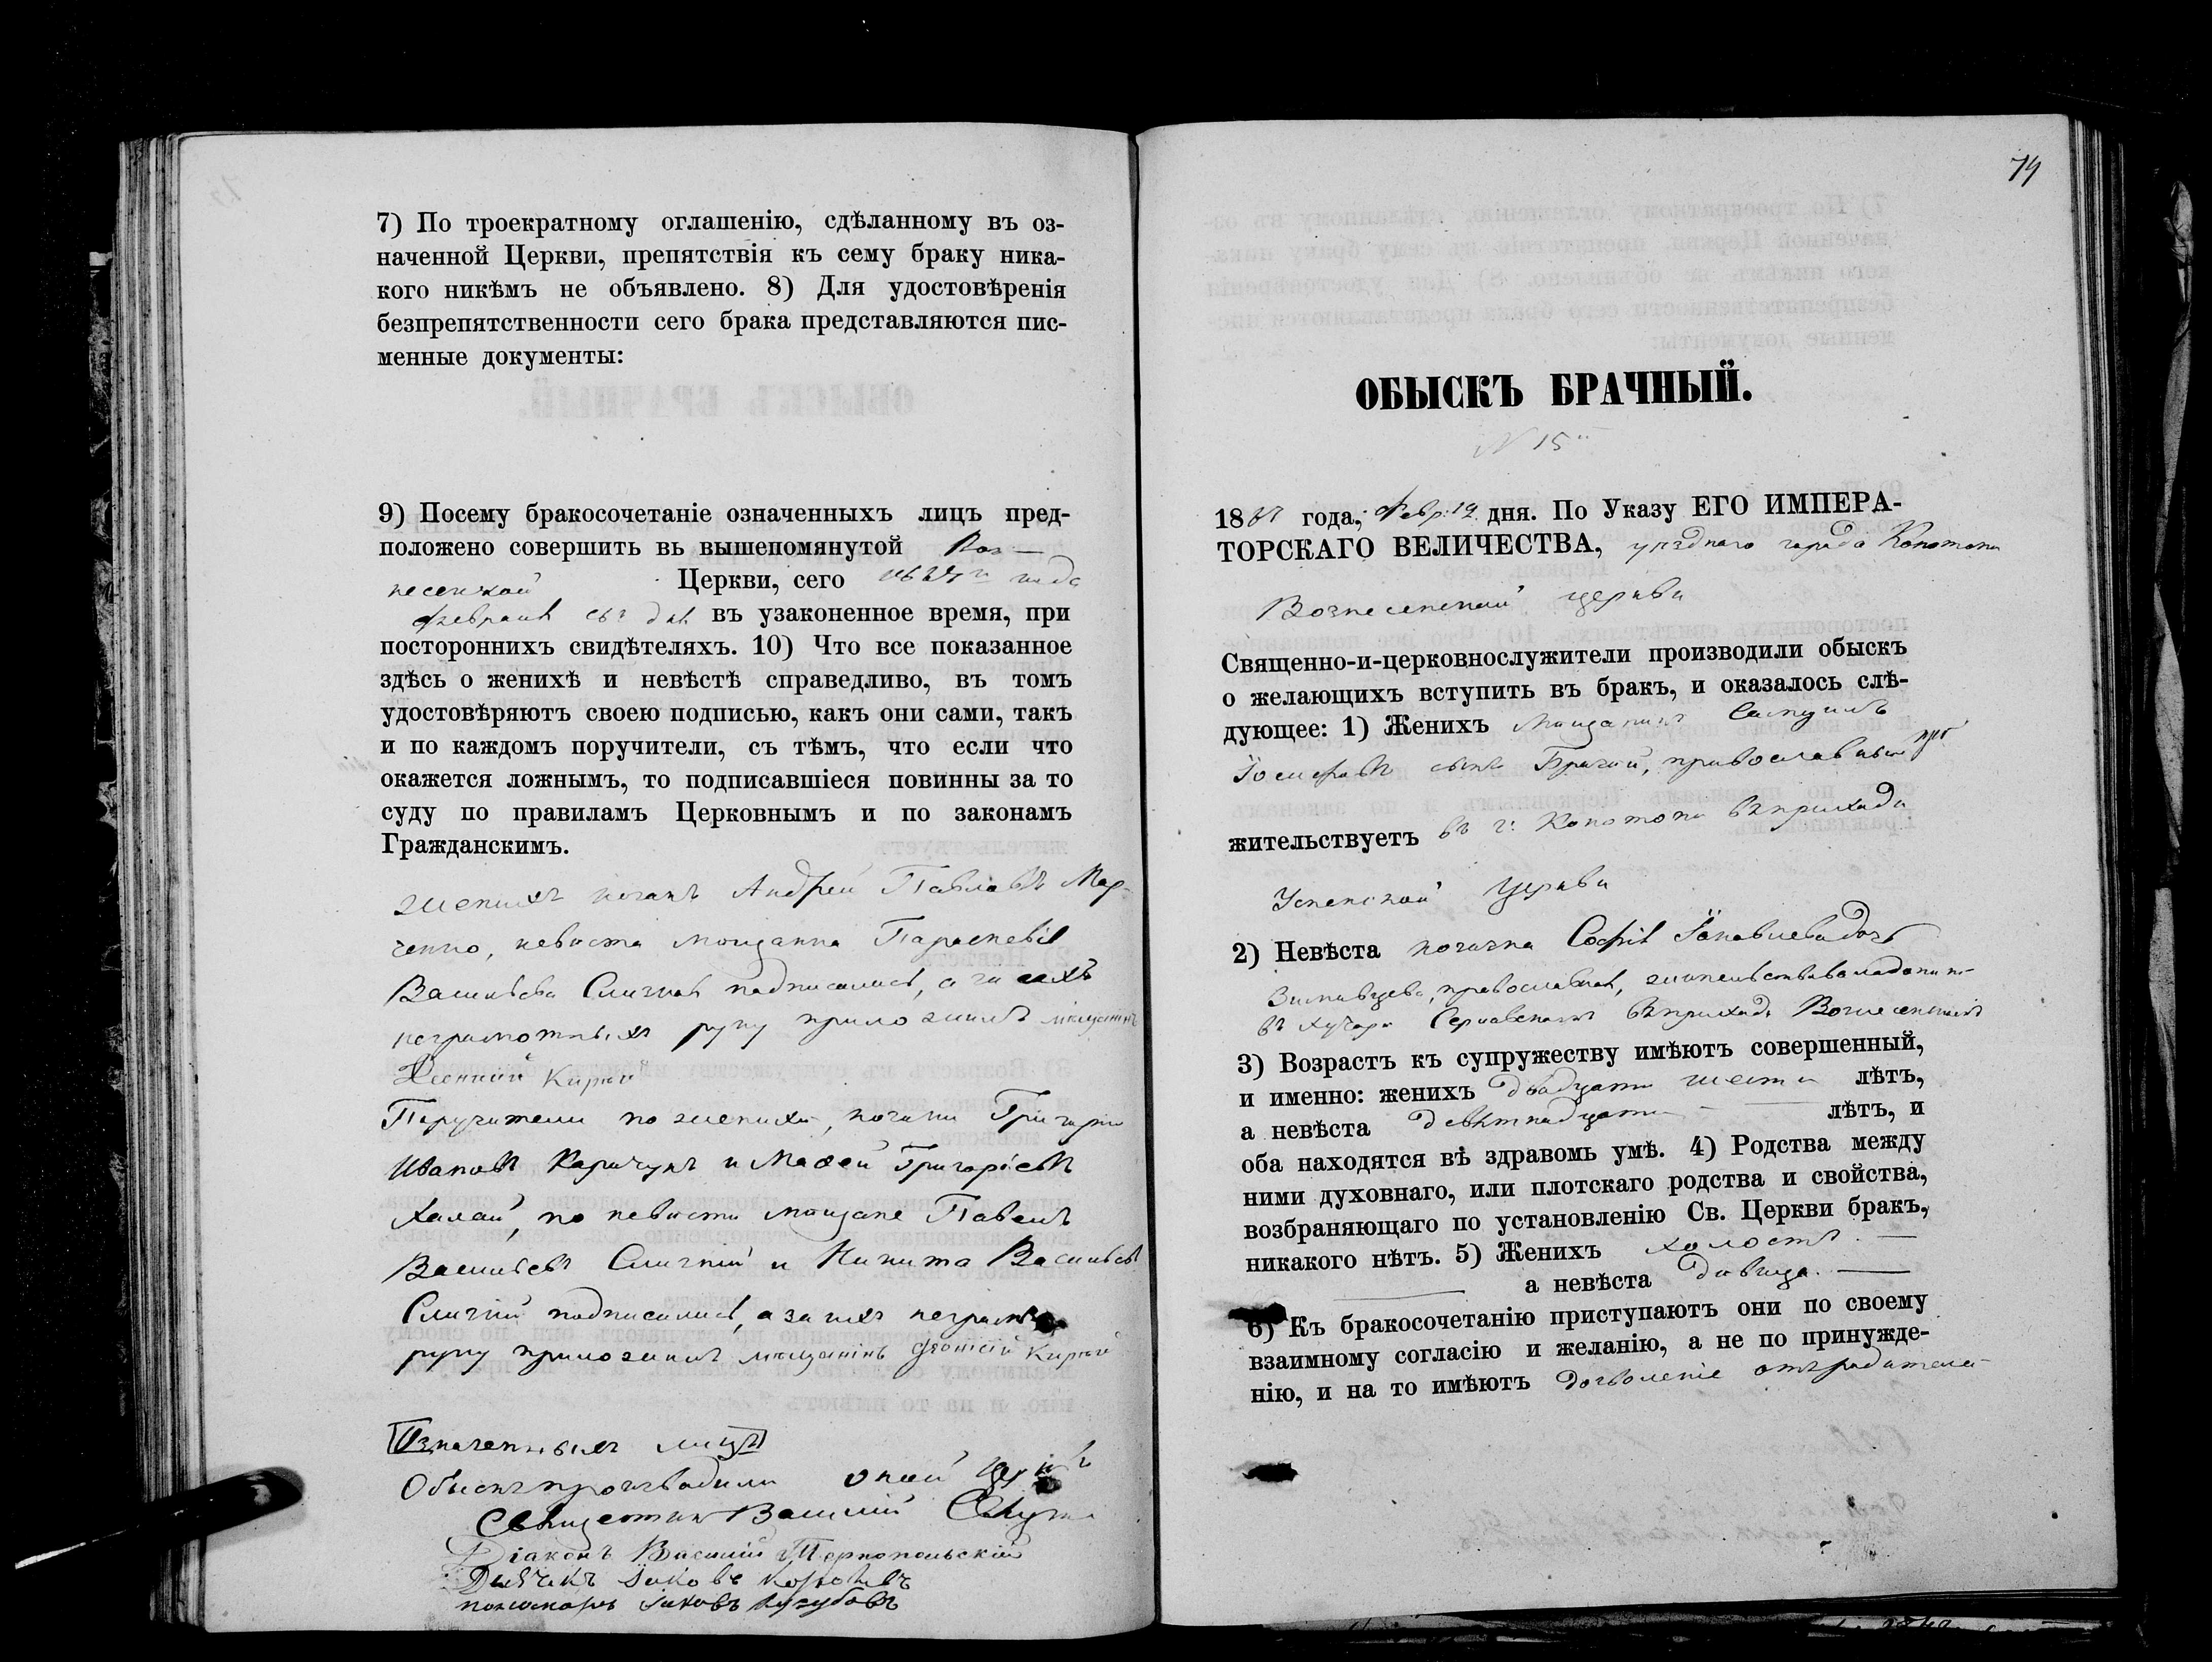 7) По троекратному оглашенію, сдѣланному въ оз-
наченной Церкви, препятствія къ сему браку ника-
кого никѣмъ не объявлено. 8) Для удостовѣренія
безпрепятственности сего брака представляются пис-
менные документы:
9) Посему бракосочетаніе означенныхъ лицъ пред-
положено совершить вь вышепомянутой Воз-
несенской Церкви, сего года
февраля дня въ узаконенное время, при
постороннихъ свидѣтеляхъ. 10) Что все показанное
здѣсь о женихѣ и невѣстѣ справедливо, въ томъ
удостовѣряютъ своею подписью, какъ они сами, такъ
и по каждомъ поручители, съ тѣмъ, что если что
окажется ложнымъ, то подписавшіеся повинны за то
суду по правиламъ Церковнымъ и по законамъ
Гражданскимъ.
женихъ козакъ Андрей Павловъ Мар-
ченко, невѣста мѣщанка Параскевія
Васильева Сличная подписались, а за ихъ
неграмотныхъ руку приложилъ мѣщанинъ
Кирѣй
Поручители по женихѣ, козаки Григорій
Ивановъ Каричунъ и Маѳей Григоріевъ
Халай, по невѣстѣ мѣщане Павелъ
Васильевъ Сличній и Никита Васильевъ
Сличній подписались, а за ихъ неграм
руку приложилъ мѣщанинъ Кирѣй
Означенныхъ лицъ
Обыскъ производили оной Церкви
Священникъ Василій
Діаконъ Василій Тернопольскій
Дьячекъ Іаковъ
пономарь Іаковъ
74
ОБЫСКЪ БРАЧНЫЙ.
N 15
18 года, Февр. 12 дня. По Указу ЕГО ИМПЕРА-
ТОРСКАГО ВЕЛИЧЕСТВА, уѣзднаго города Конотопа
Вознесенской церкви
Священно-и-церковнослужители производили обыскъ
о желающихъ вступить въ бракъ, и оказалось слѣ-
дующее: 1) Женихъ мѣщанинъ Самуилъ
Іосифовъ сынъ православный
жительствуетъ въ г. Конотопѣ въ приходѣ
Успенской Церкви
2) Невѣста козачка Софія Іаковлева дочь
православная,
въ хуторѣ въ приходѣ Вознесенскомъ
3) Возрастъ къ супружеству имѣютъ совершенный,
и именно: женихъ двадцати шести лѣтъ,
а невѣста девятнадцати лѣтъ, и
оба находятся вѣ здравомь умѣ. 4) Родства между
ними духовнаго, или плотскаго родства и свойства,
возбраняющаго по установленію Св. Церкви бракъ,
никакого нѣтъ. 5) Женихъ холостъ.
а невѣста дѣвица.
6) Къ бракосочетанію приступаютъ они по своему
взаимному согласію и желанію, а не по принужде-
нію, и на то имѣютъ дозволеніе отъ родителей